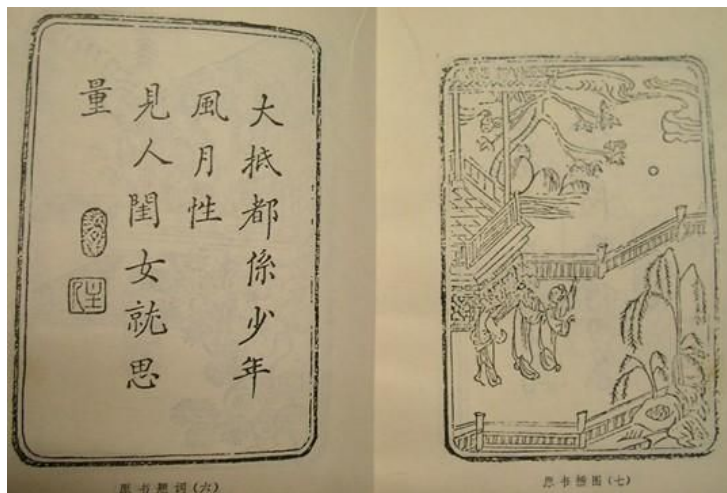 大抵都係少年
風月性
見人閨女就思
量
原书题词(六)
原书插图(七)